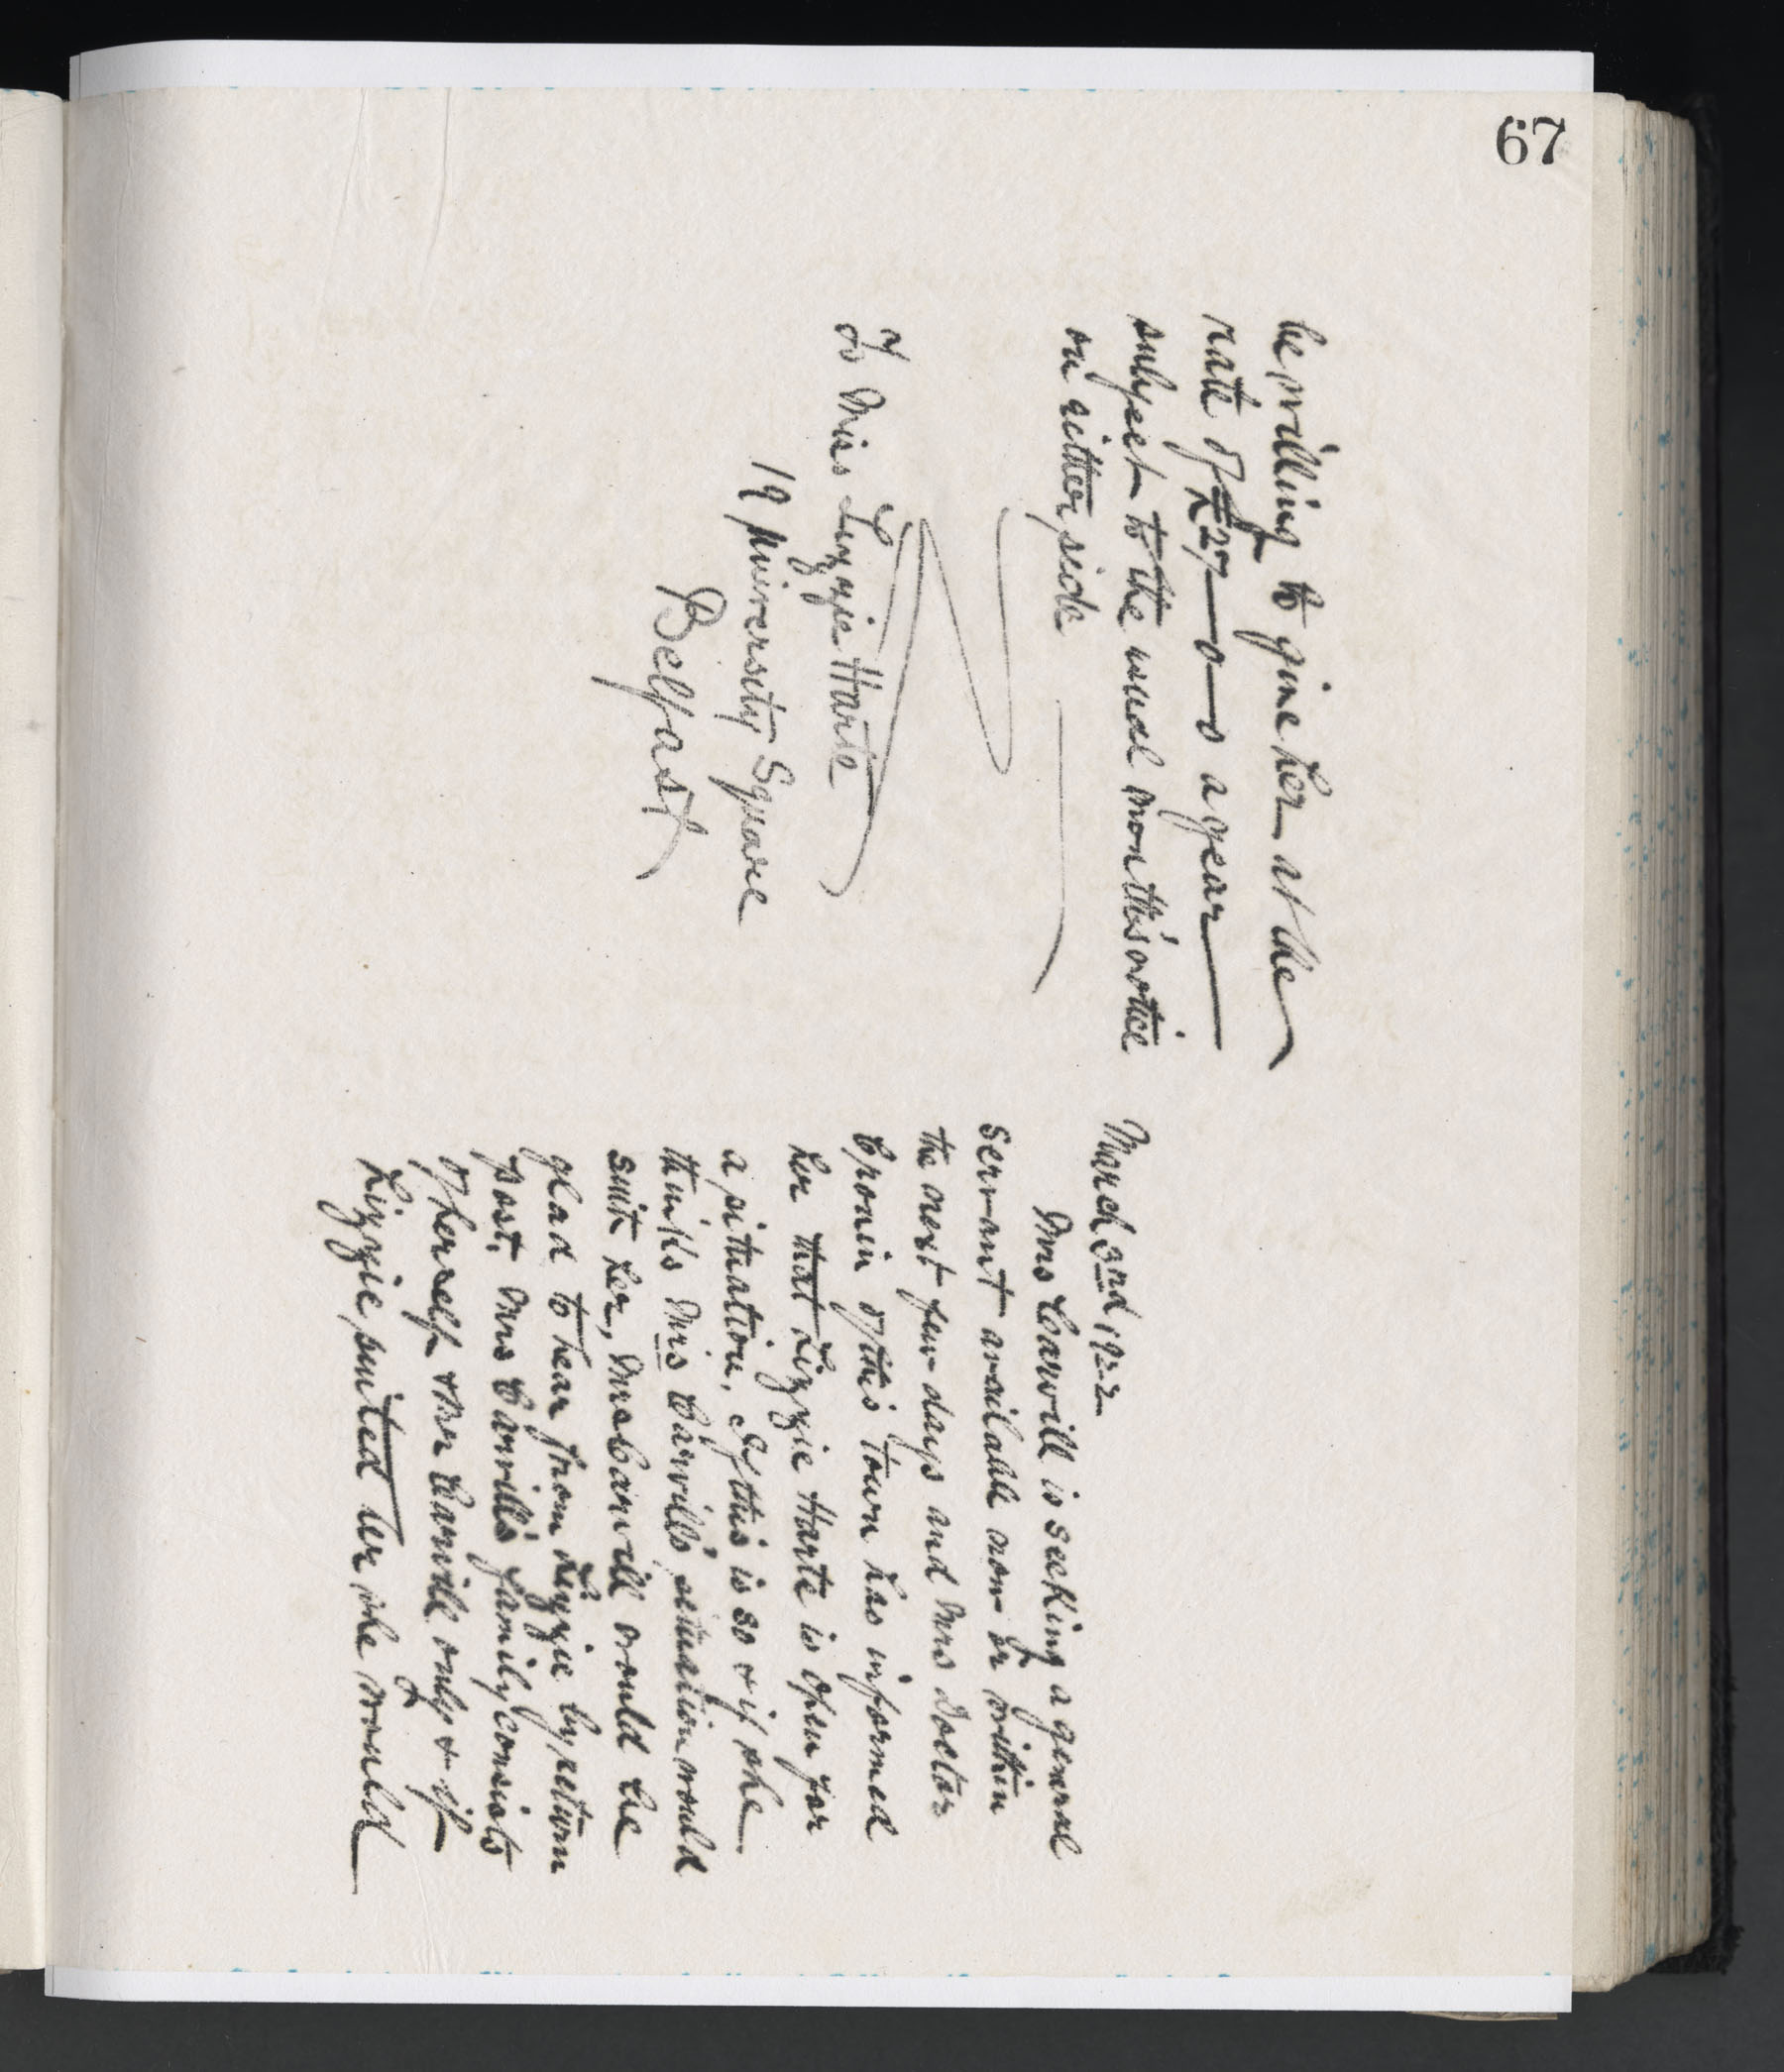 67
March 3rd 1922
Mrs Carvill is seeking a general
servant available now or within
the next few days and Mrs Doctor
Cronin of this town has informed
her that Lizzie Harte is open for
a situation. If this is so & if she
thinks Mrs Carvill's situation would
suit her, Mrs Carvill would be
glad to hear from Lizzie by return
post. Mrs Carvill's family consists
of herself & Mr Carvill only & if
Lizzie suited her she would
be willing to give her at the
rate of £27-0-0 a year
subject to the usual month's notice
on either side
To Miss Lizzie Harte
19 University Square
Belfast